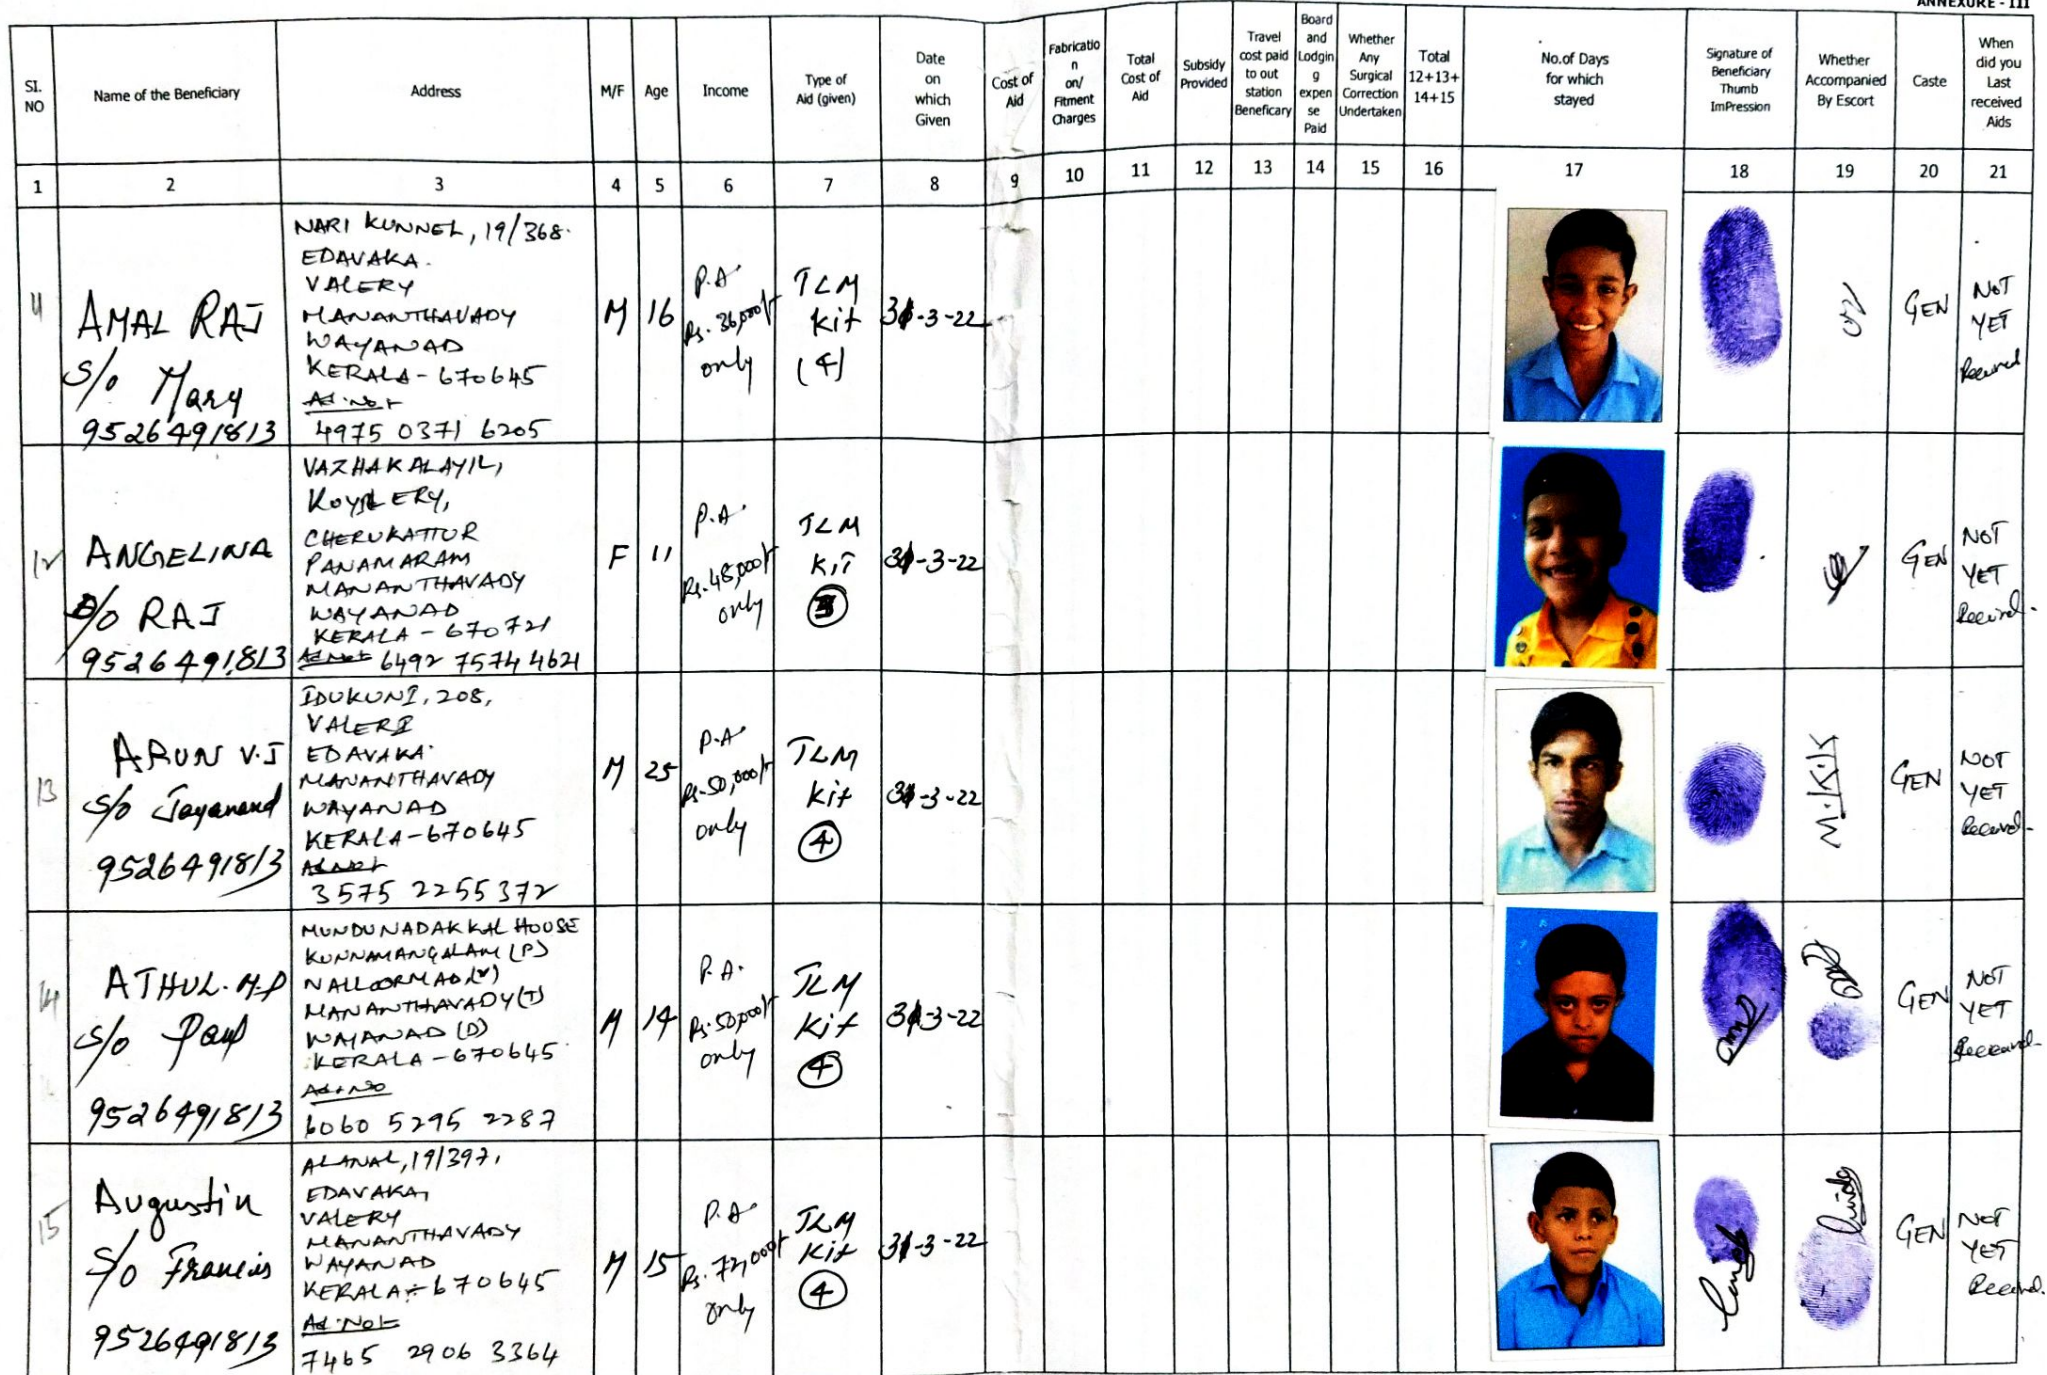 ANNEXURE - III
SI. NO
Name of the Beneficiary
Address
M/F
Age
Income
Type of Aid (given)
Date on which Given
Cost of Aid
Fabricatio n on/ Fitment Charges
Total Cost of Aid
Subsidy Provided
Travel cost paid to out station Beneficary
Board and Lodgin g expen se Paid
Whether Any Surgical Correction Undertaken
Total 12+13+ 14+15
No.of Days for which stayed
Signature of Beneficiary Thumb ImPression
Whether Accompanied By Escort
Caste
When did you Last received Aids
1 2 3 4 5 6 7 8 9 10 11 12 13 14 15 16 17 18 19 20 21
11
AMAL RAJ
S/o Mary
9526491813
NARI KUNNEL, 19/368.
EDAVAKA.
VALERY
MANANTHAVADY
WAYANAD
KERALA - 670645
Ad. No
4975 0371 6205
M
16
P.A
Rs. 36,000/-
only
TLM
Kit
(4)
31-3-22
GEN
NOT
YET
Received
12
ANGELINA
D/o RAJ
9526491813
VAZHAKALAYIL,
KOYILERY,
CHERUKATTUR
PANAMARAM
MANANTHAVADY
WAYANAD
KERALA - 670721
Ad. No 6492 7574 4621
F
11
P.A
Rs. 48,000/-
only
TLM
KIT
3
31-3-22
GEN
NOT
YET
Received.
13
ARUN V.J
S/o Jayanand
9526491813
IDUKUNI, 208,
VALERI
EDAVAKA
MANANTHAVADY
WAYANAD
KERALA - 670645
Ad. No
3575 2255 372
M
25
P.A
Rs. 50,000/-
only
TLM
Kit
4
31-3-22
M.K.K
GEN
NOT
YET
Received
14
ATHUL. M.P
S/o Paul
9526491813
MUNDUNADAKKAL HOUSE
KUNNAMANGALAM (P)
NALLOORNAD (V)
MANANTHAVADY (T)
WAYANAD (D)
KERALA - 670645
Ad. No
6060 5295 2287
M
14
P.A.
Rs. 50,000/-
only
TLM
Kit
4
31-3-22
GEN
NOT
YET
Received
15
Augustin
S/o Francis
9526491813
ALANAL, 19/397,
EDAVAKA,
VALERY
MANANTHAVADY
WAYANAD
KERALA - 670645
Ad. No
7465 2906 3364
M
15
P.A
Rs. 72,000/-
only
TLM
Kit
4
31-3-22
GEN
NOT
YET
Received.